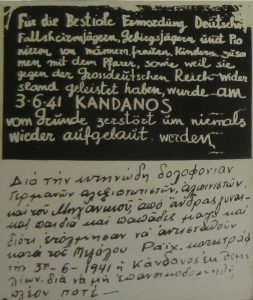 Für die Bestiale Ermordung Deutscher
Fallshirmjägern, Gebirgsjägern und Pio
nieren von männern, frauen, Kindern, zusa
men mit dem Pfarer, sowie weil sie
gegen der Grosdeutschen Reich wider
stand geleistet haben, wurde am
3-6-41 KANDANOS
vom Grunde zerstört um niemals
wieder aufgebaut werden
Διὰ τὴν κτηνώδη δολοφονίαν
Γερμανῶν ἀλεξιπτωτιστῶν, ἀλπινιστῶν,
καὶ τοῦ Μηχανικοῦ, ἀπὸ ἄνδρας, γυναῖ-
κας, παιδιὰ καὶ παπάδες μαζὺ καὶ
διότι ἐτόλμησαν νὰ ἀντισταθοῦν
κατὰ τοῦ Μεγάλου Ράιχ, κατεστράφη
τὴν 3-6-1941 ἡ Κάνδανος ἐκ θεμε-
λίων, διὰ νὰ μὴ ἐπανοικοδομηθῇ
πλέον ποτέ-